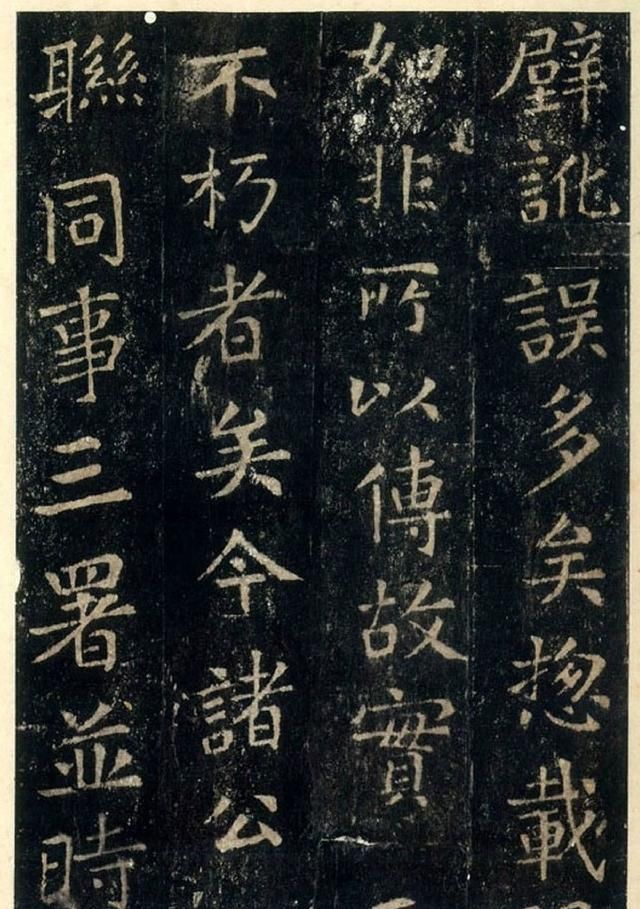 壁訛誤多矣惣載
如非所以傳故實
不朽者矣今諸公
聯同事三署並時